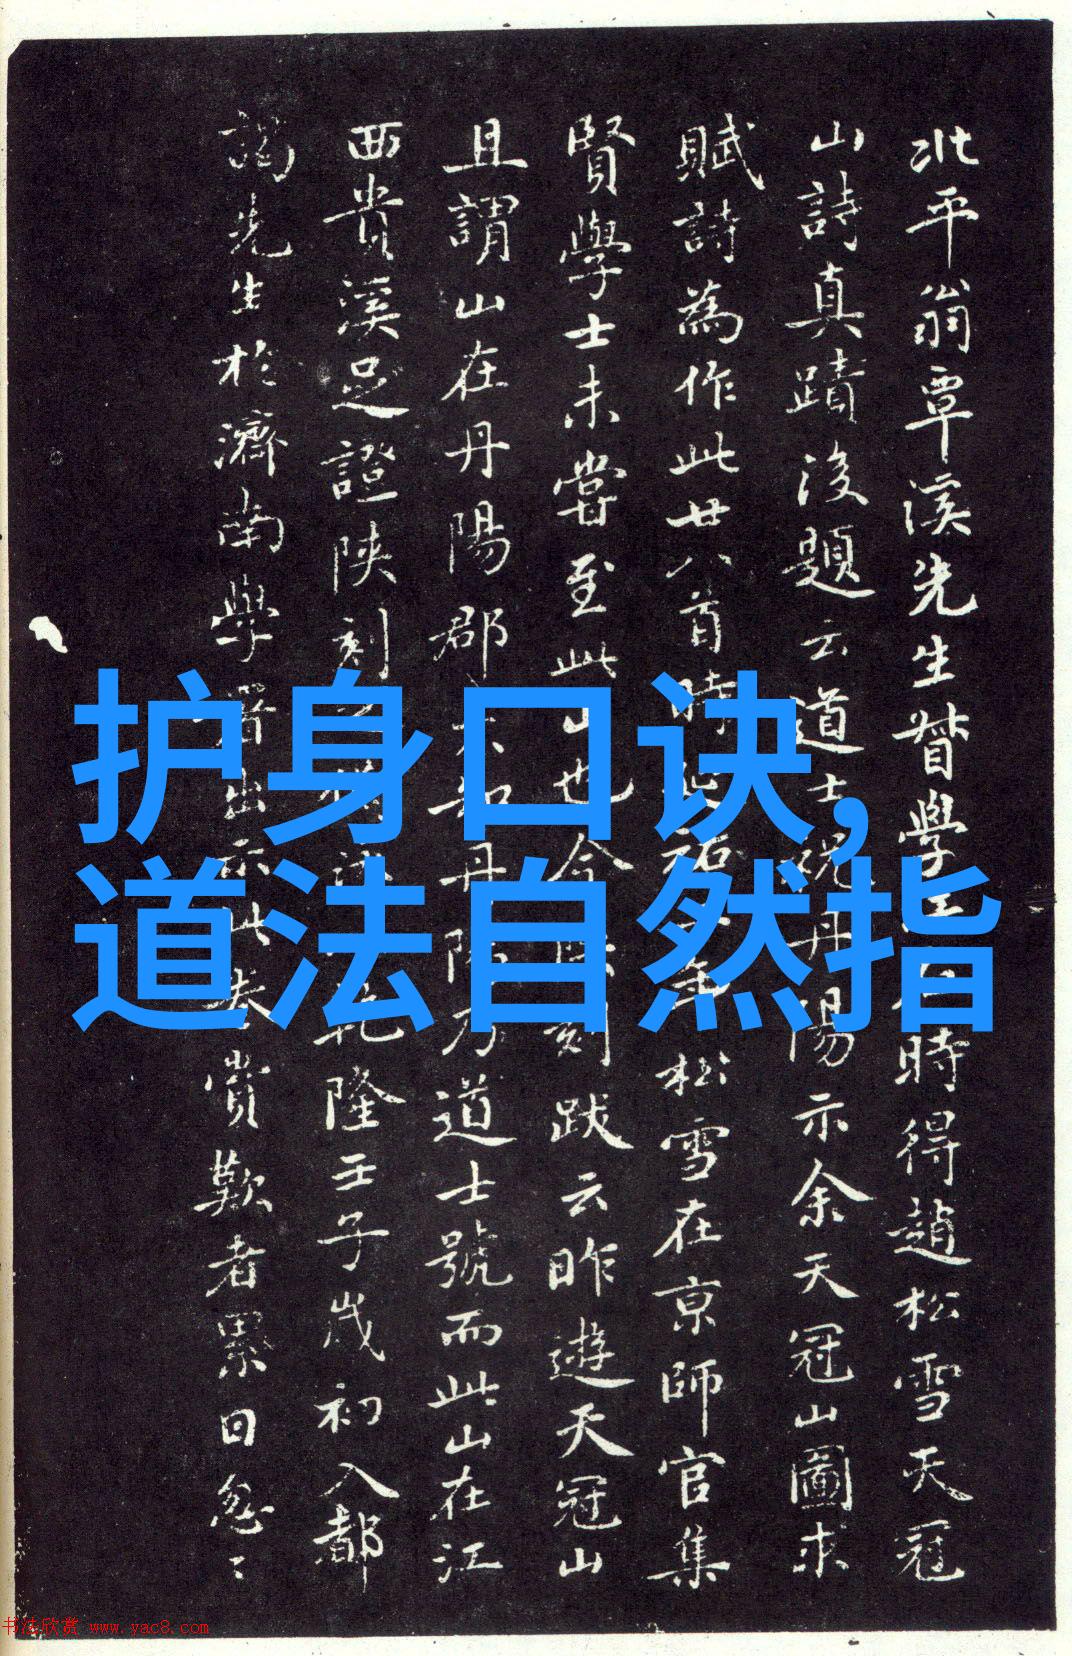 北平翁覃溪先生督學時得趙松雪天冠
山詩真蹟後題云道士祝丹陽示余天冠山圖求
賦詩為作此廿八首時年松雪在京師官集
賢學士未嘗至此山也今刻跋云昨遊天冠山
且謂山在丹陽郡不知丹陽乃道士號而此山在江
西貴溪足證陝刻乾隆壬子歲初入都
謁先生於濟南學署出示此卷賞歎者累日忽〻
护身口诀,
道法自然指
书法欣赏 www.yac8.com